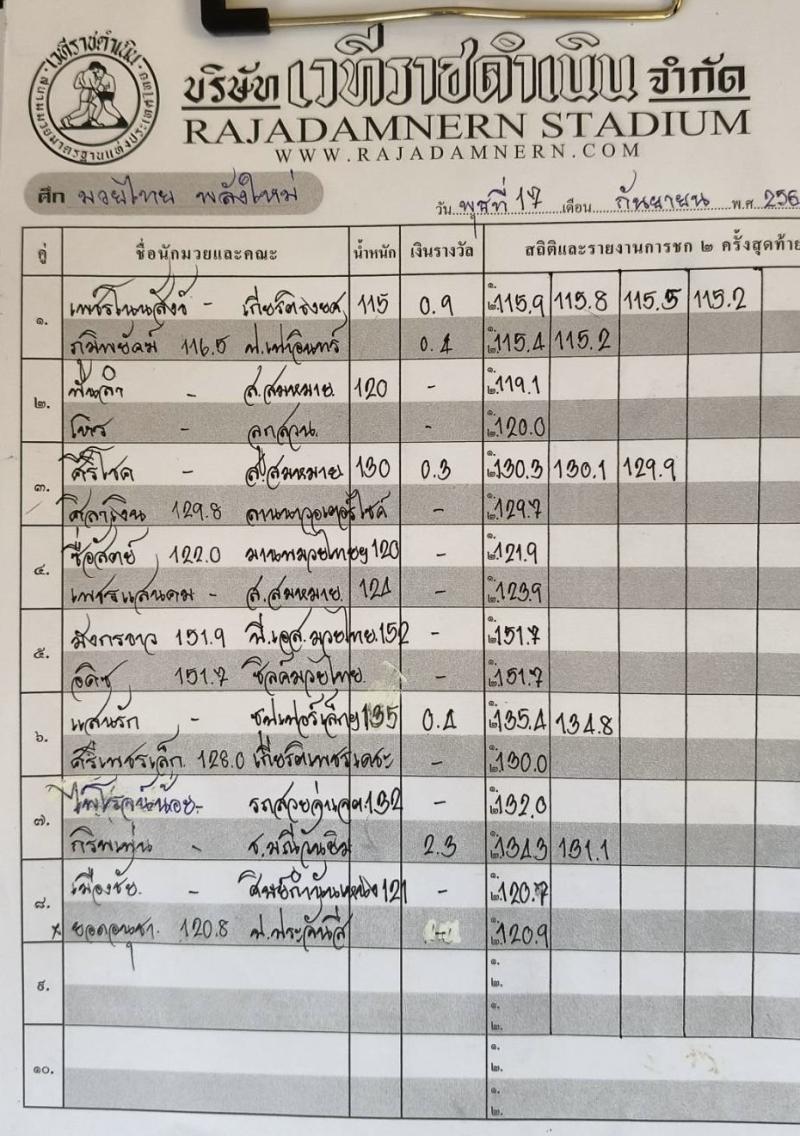 เวทีราชดำเนิน
สนามมวยมาตรฐานแห่งประเทศไทย
บริษัท เวทีราชดำเนิน จำกัด
RAJADAMNERN STADIUM
WWW.RAJADAMNERN.COM
ศึก มวยไทย พลังใหม่
วัน พุธที่ 17 เดือน กันยายน พ.ศ 256
คู่ ชื่อนักมวยและคณะ น้ำหนัก เงินรางวัล สถิติและรายงานการชก ๒ ครั้งสุดท้าย
๑. - เกียรติธงยศ 115 0.9 ๑. ๒. 115.9 115.8 115.5 115.2
116.5 0.4 ๑. ๒. 115.4 115.2
๒. - ส.สมหมาย. 120 - ๑. ๒. 119.1
โชเร - ลูกสวน. - ๑. ๒. 120.0
๓. ศิริโชค - ส.สมหมาย. 130 0.3 ๑. ๒. 130.3 130.1 129.9
ศิลาเงิน 129.8 - ๑. ๒. 129.7
๔. ซื่อสัตย์ 122.0 มานพมวยไทยฯ 120 - ๑. ๒. 121.9
เพชรแสนคม - ส.สมหมาย. 124 - ๑. ๒. 123.9
๕. มังกรขาว 151.9 พี.เอส.มวยไทย. 152 - ๑. ๒. 151.7
151.7 ซิลค์มวยไทย. - ๑. ๒. 151.7
๖. แสนรัก - ซุปเปอร์เล็กฯ 135 0.4 ๑. ๒. 135.4 134.8
ศิริเพชรเล็ก. 128.0 เกียรติเพชรเดชะ - ๑. ๒. 130.0
๗. - 132 - ๑. ๒. 132.0
- 2.3 ๑. ๒. 134.3 131.1
๘. เมืองชัย. - 121 - ๑. ๒. 120.7
x 120.8 - ๑. ๒. 120.9
๙. ๑.
๒.
๑.
๒.
๑๐. ๑.
๒.
๑.
๒.